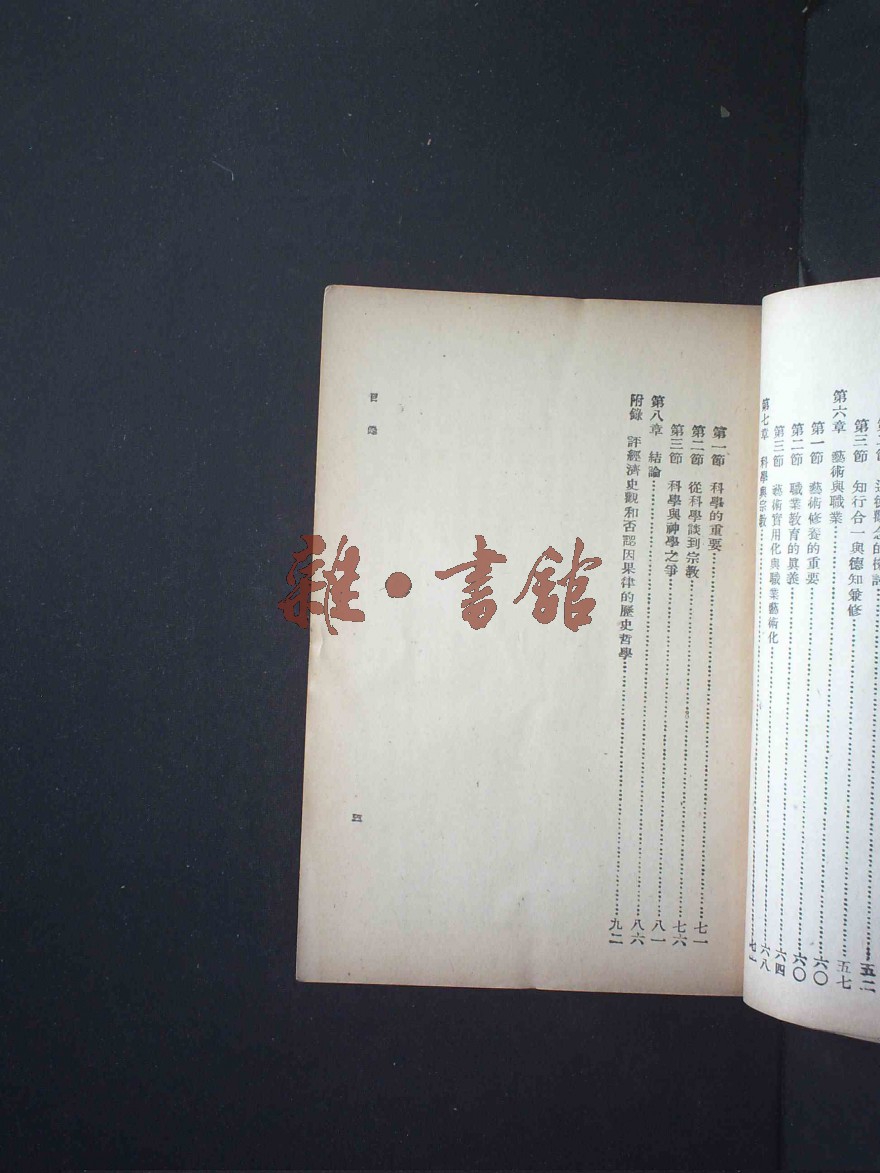 觀念的 五二
第三節 知行合一與德知兼修……五七
第六章 藝術與職業……六〇
第一節 藝術修養的重要……六〇
第二節 職業教育的眞義……六四
第三節 藝術實用化與職業藝術化……六八
第七章 科學與宗教……七一
第一節 科學的重要……七一
第二節 從科學談到宗教……七六
第三節 科學與神學之爭……八一
第八章 結論……八六
附錄 評經濟史觀和否認因果律的歷史哲學……九二
目錄
雜·書館